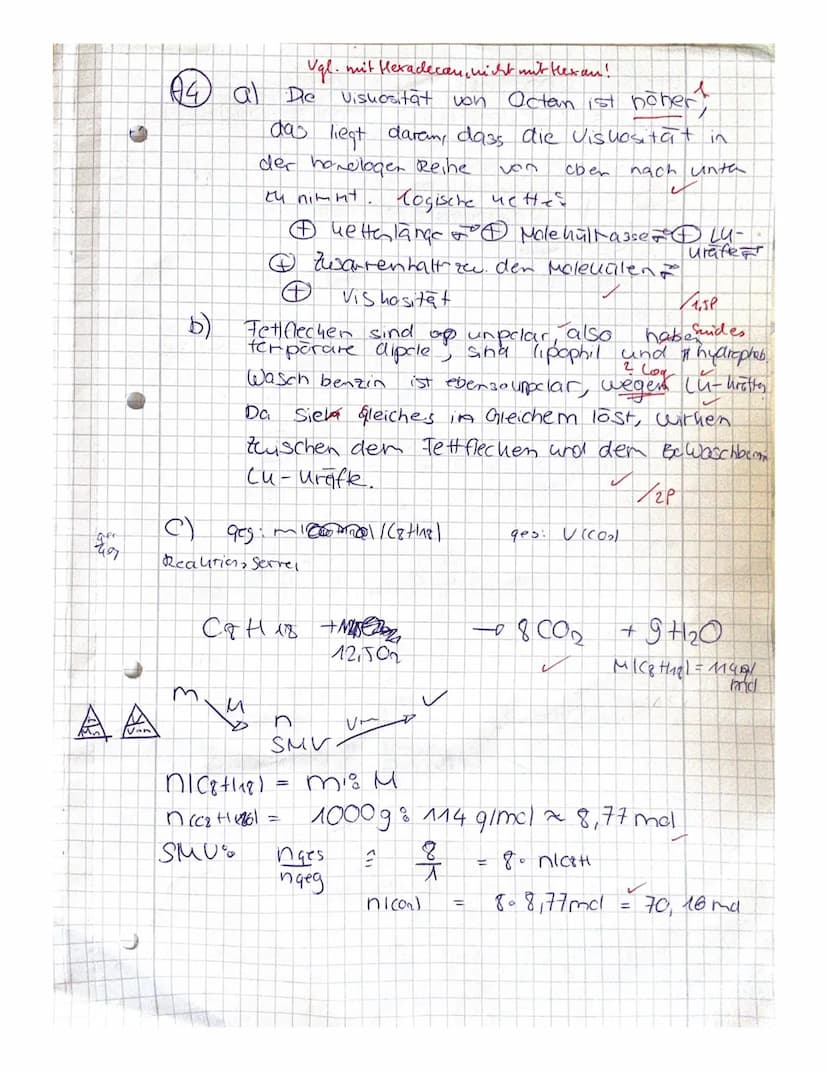 Vgl. mit Hexadecan, nicht mit Hexan!
A4 a) Die Viskosität von Octan ist höher,
das liegt daran, dass die Viskosität in
der homologen Reihe von oben nach unten
zu nimmt. Logische Kette:
⊕ Kettenlänge → ⊕ Molekülmasse → ⊕ LU-
Kräfte →
⊕ Zusammenhalt zw. den Molekülen →
⊕ Viskosität
/1,5P
b) Fettflecken sind unpolar, also haben beides
temporäre dipole, sind lipophil und hydrophob.
2 Log
Waschbenzin ist ebenso unpolar, wegen LU-Kräften
Da sich gleiches in Gleichem löst, wirken
zwischen dem Fettflecken und dem Waschbenzin
LU-Kräfte.
/2P
c) geg: m(C8H18) ges: V(CO2)
C8H18 + 12,5O2 → 8CO2 + 9H2O
M(C8H18) = 114g/
mol
m M n Vm V
SMV
n(C8H18) = m : M
n(C8H18) = 1000g : 114 g/mol ≈ 8,77 mol
SMV: nges/ngeg ≙ 8/1 = 8 · n(C8H
n(CO2) = 8 · 8,77mol = 70,16 mol